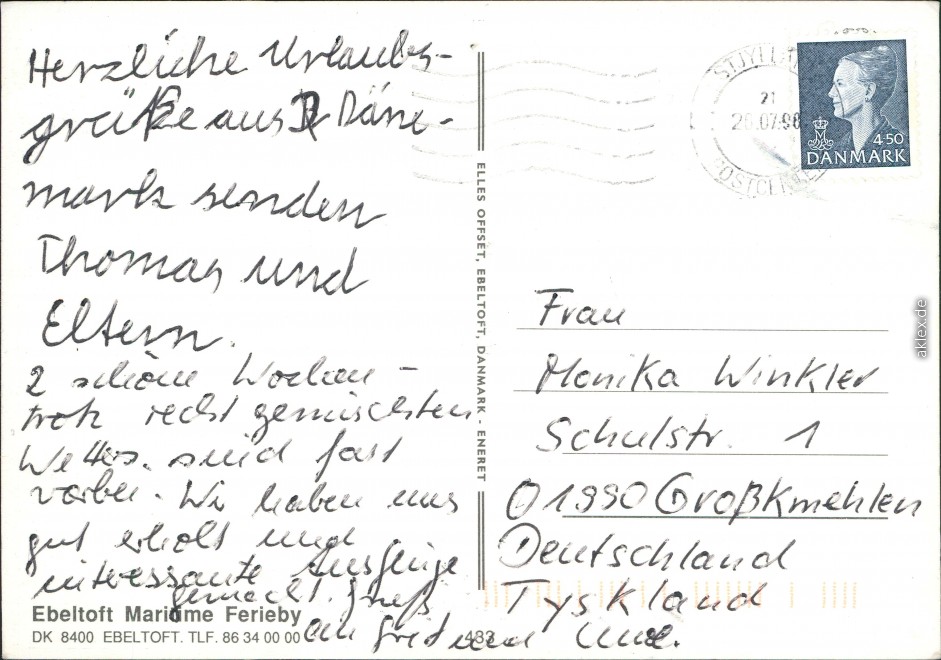 Herzliche Urlaubs-
grüße aus Däne-
mark senden
Thomas und
Eltern.
2 schöne Wochen -
trotz recht gemischten
Wetters. sind fast
vorbei. Wir haben uns
gut erholt und
interessante Ausflüge
gemacht. Gruß
an Grid und Uwe.
Ebeltoft Maritime Ferieby
DK 8400 EBELTOFT. TLF. 86 34 00 00
483
ELLES OFFSET, EBELTOFT, DANMARK - ENERET
21
20.07.98
POSTCENTER
4.50
DANMARK
Frau
Monika Winkler
Schulstr. 1
01990 Großkmehlen
Deutschland
Tyskland
aklex.de